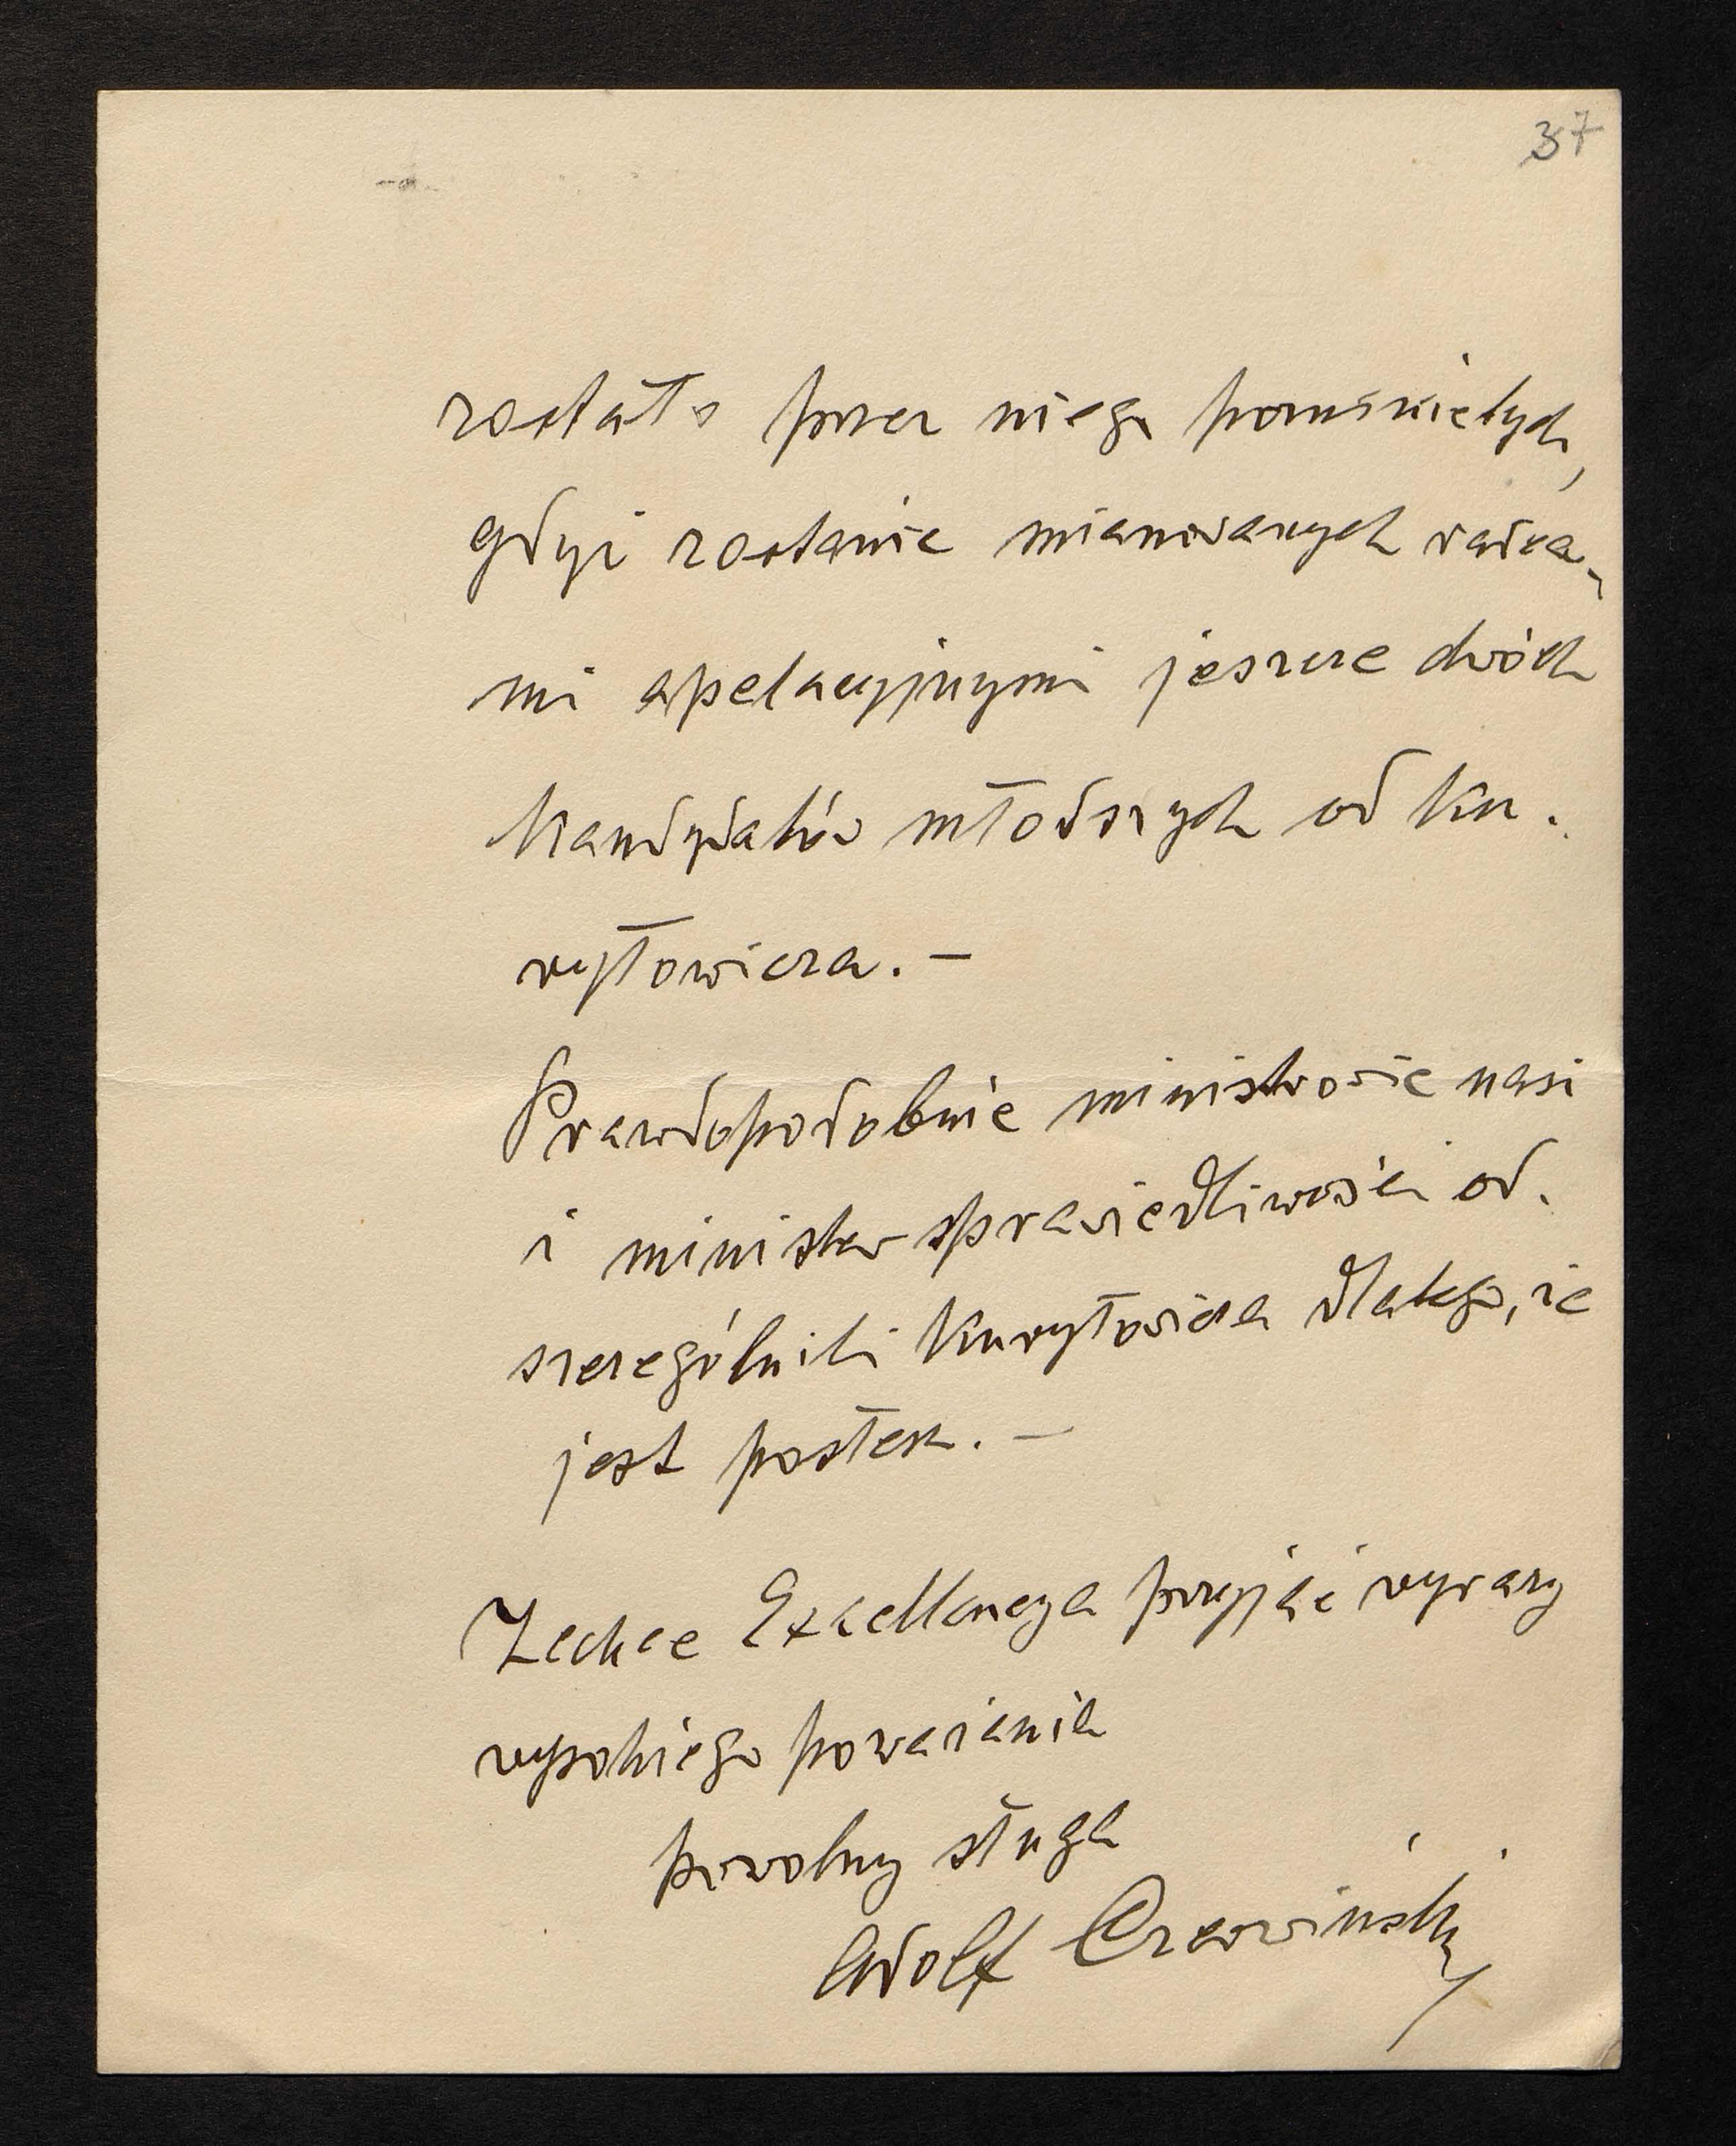 37
zostało przez niego pominiętych,
gdyż zostanie mianowanych radca-
mi apelacyjnymi jeszcze dwóch
kandydatów młodszych od Ku.
ryłowicza. —
Prawdopodobnie ministrowie nasi
i minister sprawiedliwości od.
szczególnili Kuryłowicza dlatego, że
jest posłem. —
Zechce Excellencya przyjąć wyrazy
wysokiego poważania
powolny sługa
Adolf Czerwiński